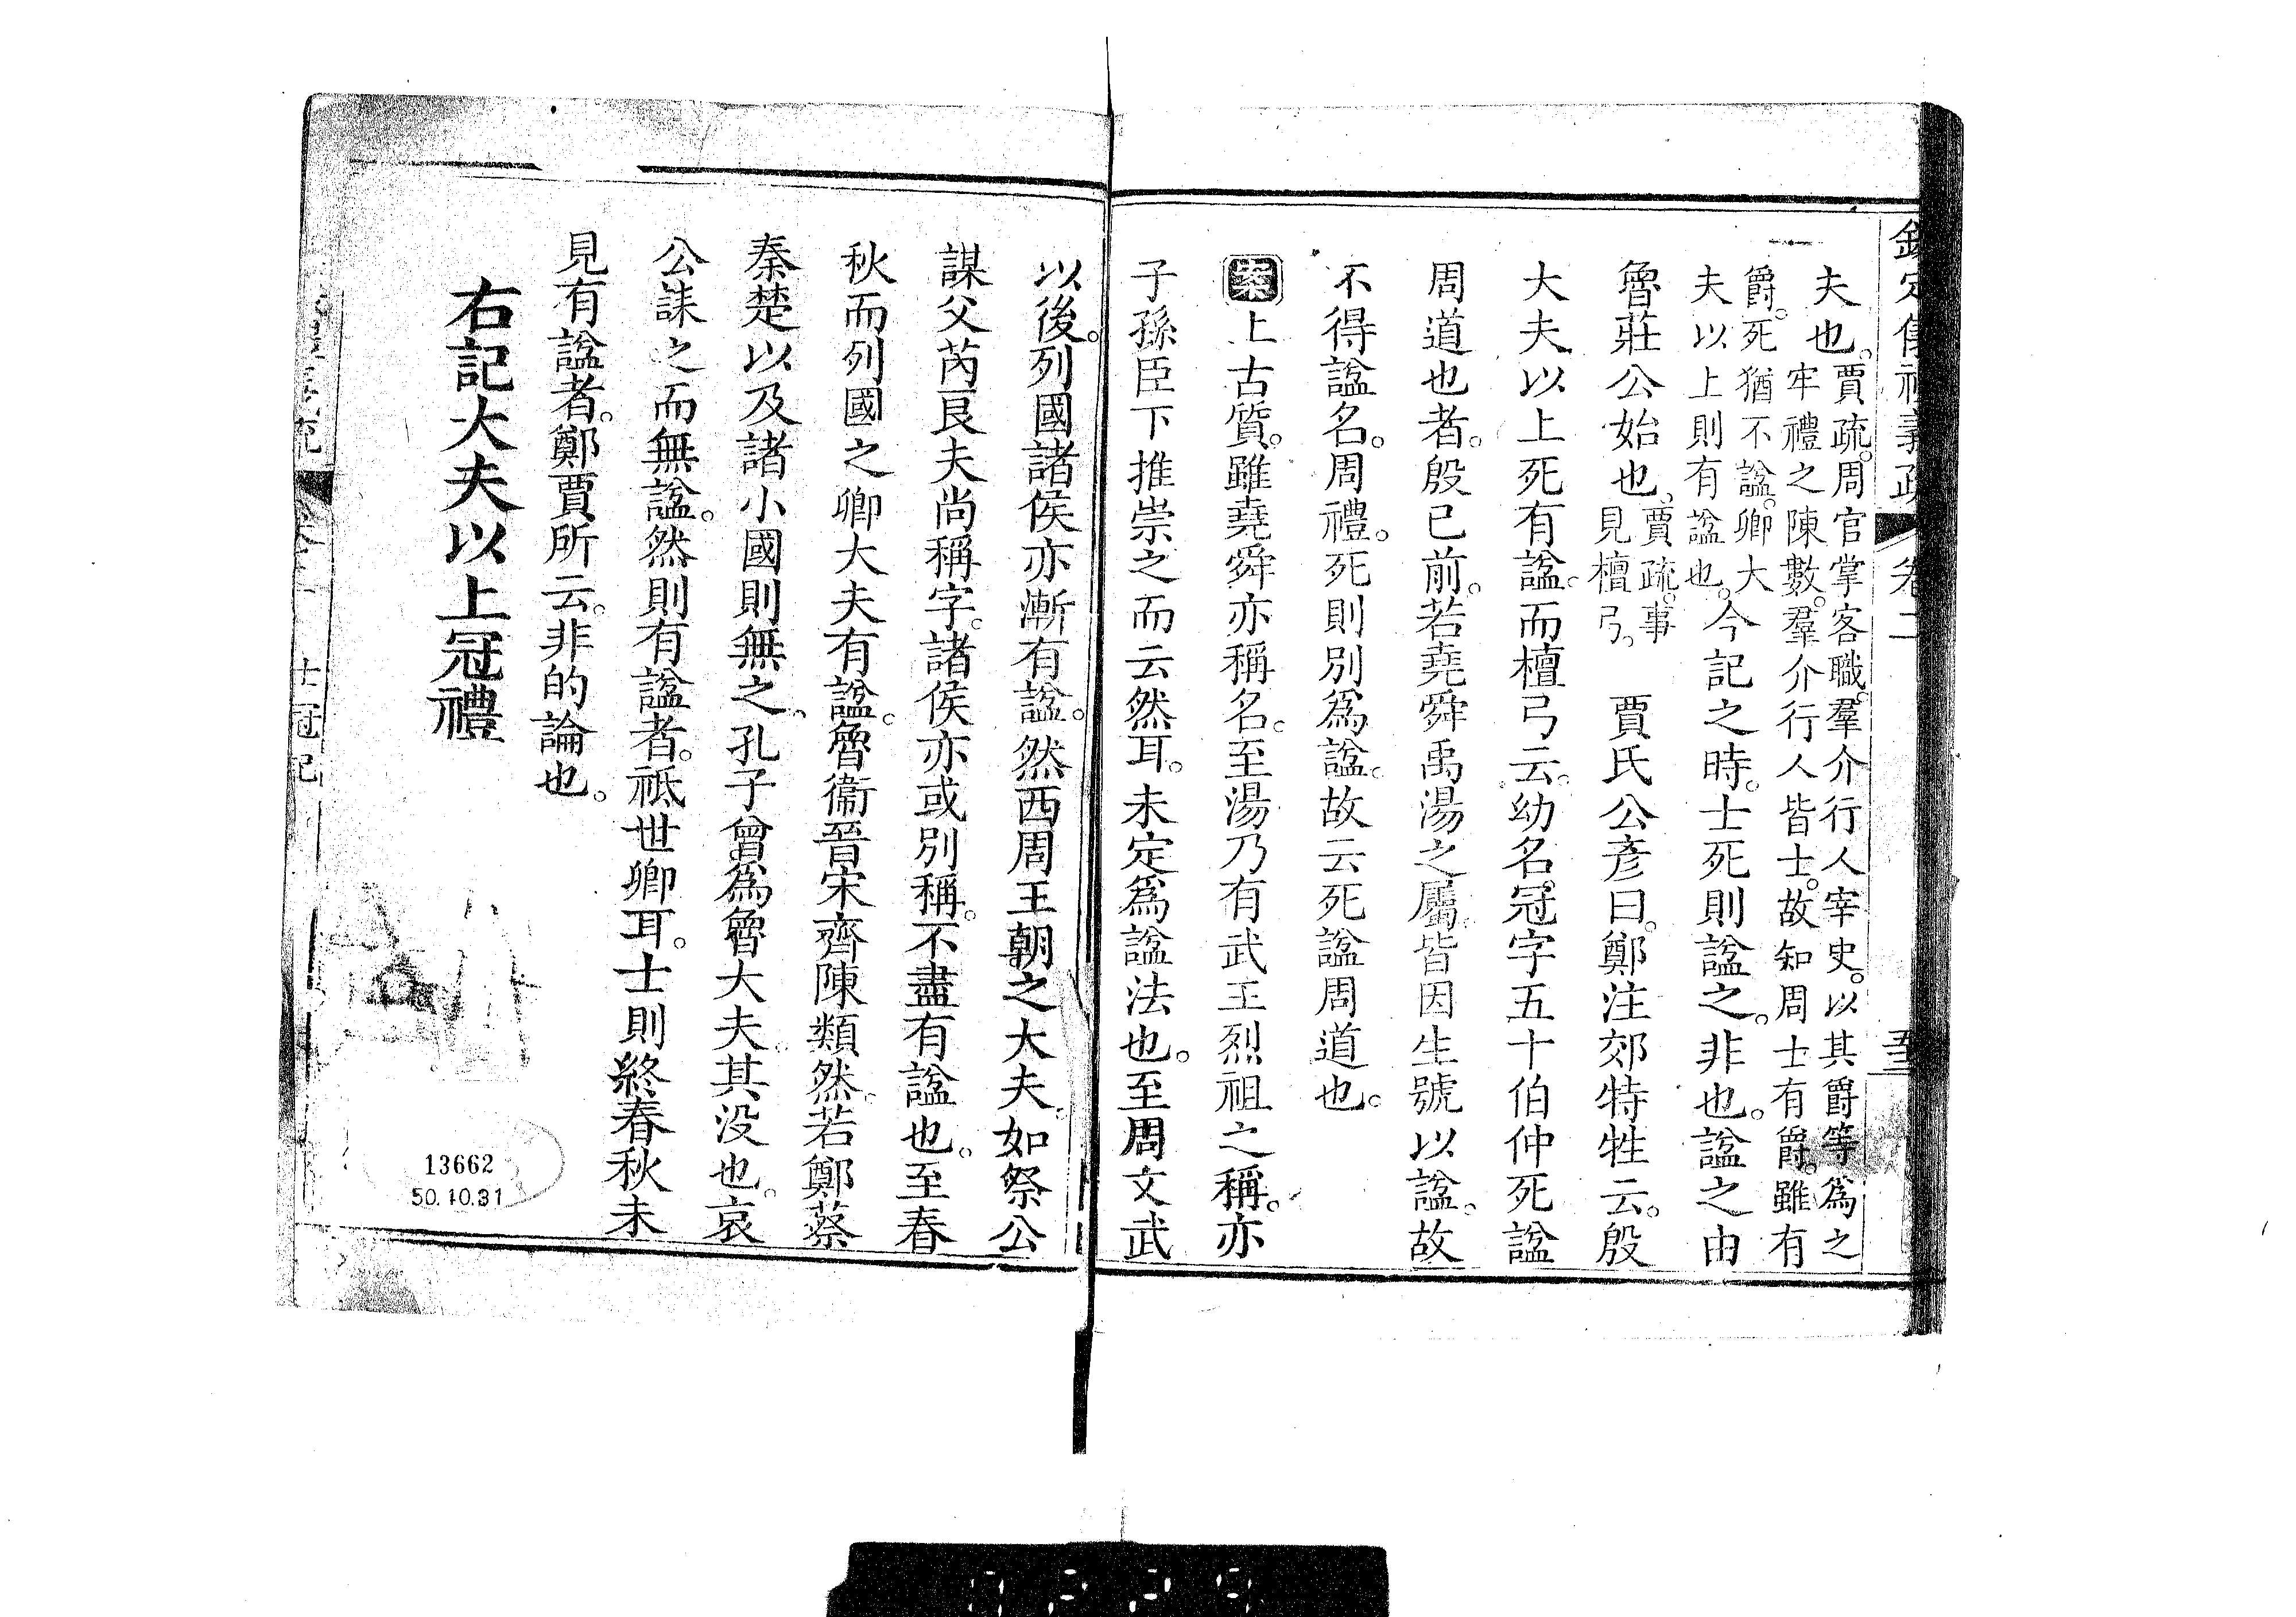 欽定儀禮義疏 卷二 
夫也。賈疏。周官掌客職。羣介行人宰史。以其爵等為之
牢禮之陳數。羣介行人皆士。故知周士有爵。雖有
爵。死猶不諡。卿大
夫以上則有諡也。今記之時。士死則諡之。非也。諡之由
魯莊公始也、賈疏。事
見檀弓。 賈氏公彥曰。鄭注郊特牲云。殷
大夫以上死有諡。而檀弓云。幼名。冠字五十伯仲死諡
周道也者。殷已前。若堯舜禹湯之屬。皆因生號以諡。故
不得諡名。周禮。死則別為諡。故云死諡周道也。
案上古質。雖堯舜亦稱名。至湯乃有武王烈祖之稱。亦
子孫臣下推崇之而云然耳。未定為諡法也。至周文武
以後。列國諸侯亦漸有諡。然西周王朝之大夫。如祭公
謀父芮艮夫尚稱字。諸侯亦或別稱。不盡有諡也。至春
秋而列國之卿大夫有諡。魯衞晉宋齊陳類然。若鄭蔡
秦楚以及諸小國則無之、孔子曾為魯大夫。其没也。哀
公誄之而無諡。然則有諡者。祗世卿耳。士則終春秋未
見有諡者。鄭賈所云。非的論也。
右記大夫以上冠禮
士冠記
13662
50.10.31